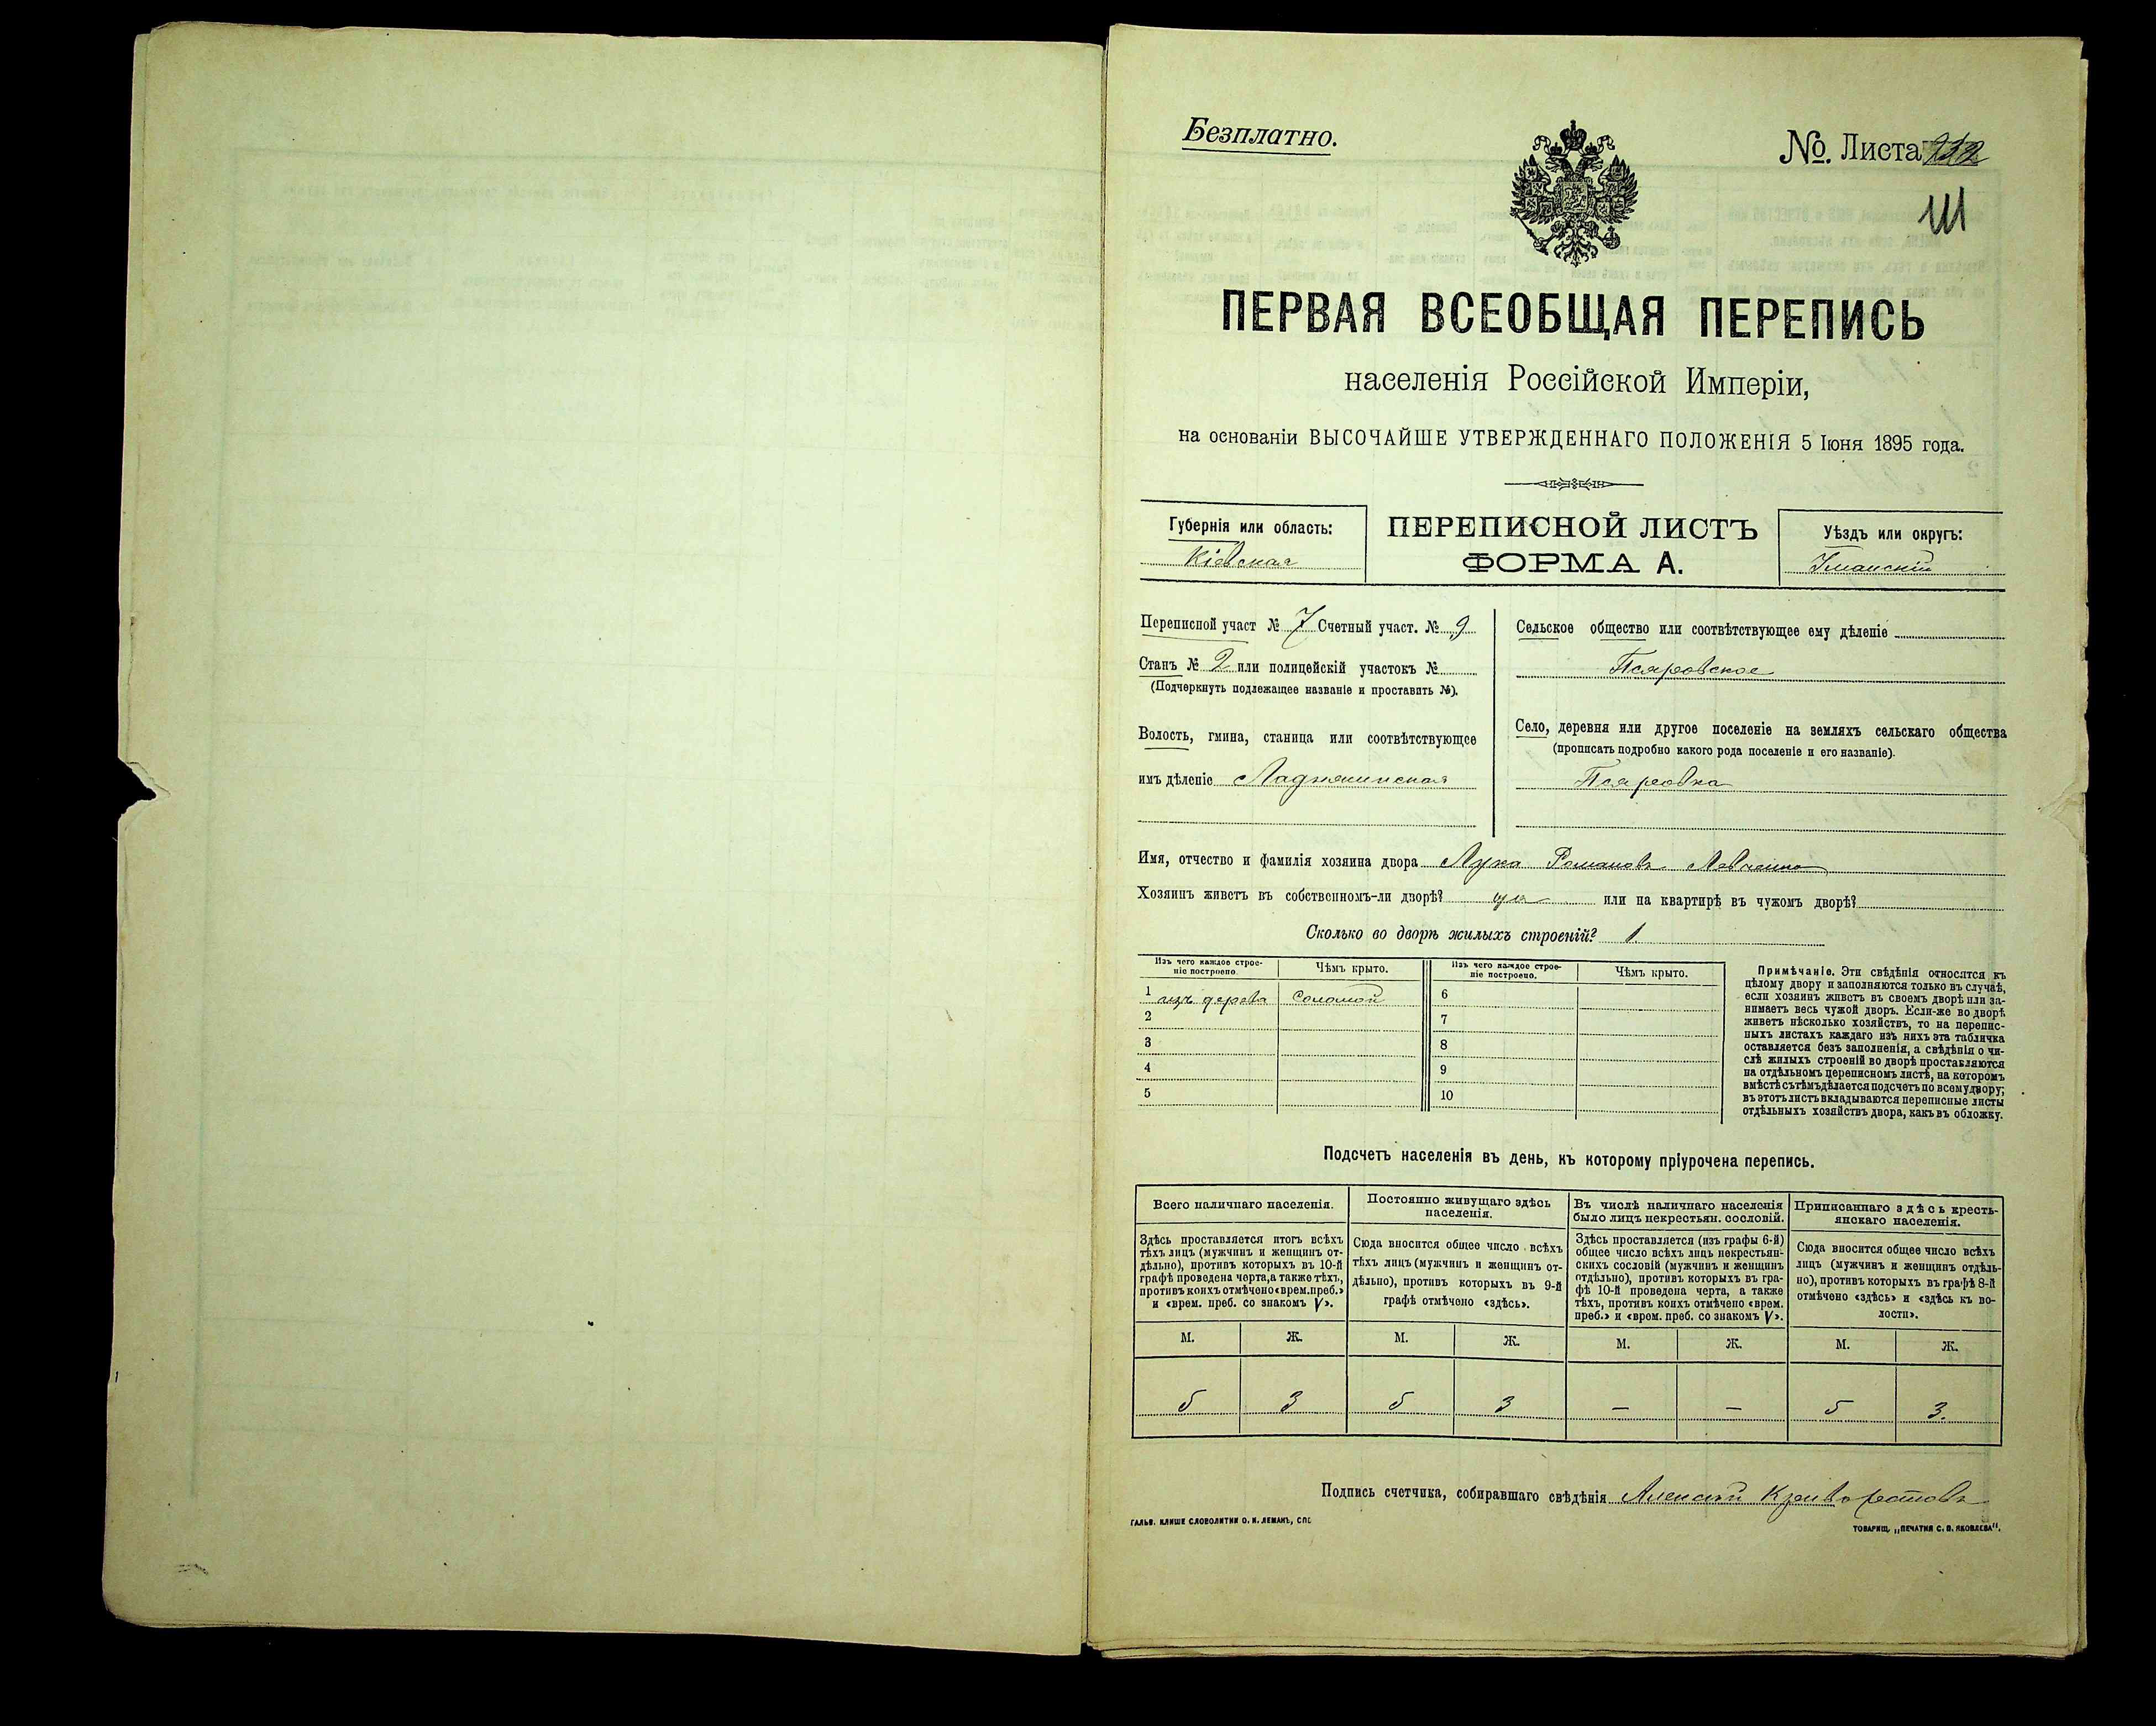 Безплатно.
№. Листа
111
ПЕРВАЯ ВСЕОБЩАЯ ПЕРЕПИСЬ
населенія Россійской Имперіи,
на основаніи ВЫСОЧАЙШЕ УТВЕРЖДЕННАГО ПОЛОЖЕНІЯ 5 Іюня 1895 года.
Губернія или область:
Кіевская
ПЕРЕПИСНОЙ ЛИСТЪ
ФОРМА А.
Уѣздъ или округъ:
Уманскій
Переписной участ № 7 Счетный участ. № 9
Станъ № 2 или полицейскій участокъ №
(Подчеркнуть подлежащее названіе и проставить №).
Волость, гмина, станица или соотвѣтствующее
имъ дѣленіе Ладыжинская
Сельское общество или соотвѣтствующее ему дѣленіе
Псяровское
Село, деревня или другое поселеніе на земляхъ сельскаго общества
(прописать подробно какого рода поселеніе и его названіе).
Псяровка
Имя, отчество и фамилія хозяина двора Лука Романовъ Левченко
Хозяинъ живетъ въ собственномъ-ли дворѣ? да или на квартирѣ въ чужомъ дворѣ?
Сколько во дворѣ жилыхъ строеній? 1
Изъ чего каждое строе-
ніе построено.
Чѣмъ крыто.
Изъ чего каждое строе-
ніе построено.
Чѣмъ крыто.
1 изъ дерева соломой 6
2 7
3 8
4 9
5 10
Примѣчаніе. Эти свѣдѣнія относятся къ
цѣлому двору и заполняются только въ случаѣ,
если хозяинъ живетъ въ своемъ дворѣ или за-
нимаетъ весь чужой дворъ. Если-же во дворѣ
живетъ нѣсколько хозяйствъ, то на перепис-
ныхъ листахъ каждаго изъ нихъ эта табличка
оставляется безъ заполненія, а свѣдѣнія о чи-
слѣ жилыхъ строеній во дворѣ проставляются
на отдѣльномъ переписномъ листѣ, на которомъ
вмѣстѣ съ тѣмъ дѣлается подсчетъ по всему двору;
въ этотъ листъ вкладываются переписные листы
отдѣльныхъ хозяйствъ двора, какъ въ обложку.
Подсчетъ населенія въ день, къ которому пріурочена перепись.
Всего наличнаго населенія.
Здѣсь проставляется итогъ всѣхъ
тѣхъ лицъ (мужчинъ и женщинъ от-
дѣльно), противъ которыхъ въ 10-й
графѣ проведена черта, а также тѣхъ,
противъ коихъ отмѣчено «врем. преб.»
и «врем. преб. со знакомъ V».
Постоянно живущаго здѣсь
населенія.
Сюда вносится общее число всѣхъ
тѣхъ лицъ (мужчинъ и женщинъ от-
дѣльно), противъ которыхъ въ 9-й
графѣ отмѣчено «здѣсь».
Въ числѣ наличнаго населенія
было лицъ некрестьян. сословій.
Здѣсь проставляется (изъ графы 6-й)
общее число всѣхъ лицъ некрестьян-
скихъ сословій (мужчинъ и женщинъ
отдѣльно), противъ которыхъ въ гра-
фѣ 10-й проведена черта, а также
тѣхъ, противъ коихъ отмѣчено «врем.
преб.» и «врем. преб. со знакомъ V».
Приписаннаго здѣсь кресть-
янскаго населенія.
Сюда вносится общее число всѣхъ
лицъ (мужчинъ и женщинъ отдѣль-
но), противъ которыхъ въ графѣ 8-й
отмѣчено «здѣсь» и «здѣсь къ во-
лости».
М. Ж. М. Ж. М. Ж. М. Ж.
5 3 5 3 — — 5 3.
Подпись счетчика, собиравшаго свѣдѣнія Алексѣй
ГАЛЬВ. КЛИШЕ СЛОВОЛИТНИ О. И. ЛЕМАНЪ, СПБ
ТОВАРИЩ. „ПЕЧАТНЯ С. П. ЯКОВЛЕВА".